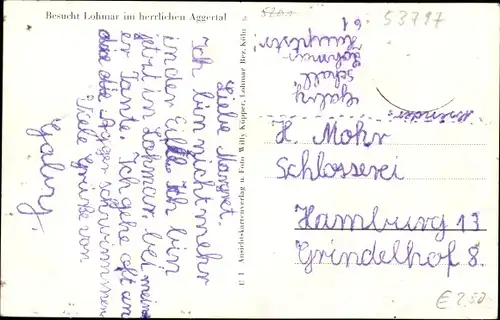 Besucht Lohmar im herrlichen Aggertal
Liebe Margret.
Ich bin nicht mehr
in der Eifel. Ich bin
jetzt in Lohmar bei meiner
Tante. Ich gehe oft an
die Agger schwimmen
Viele Grüße von
Gaby.
E 1 Ansichtskartenverlag u. Foto Willy Küpper, Lohmar Bez. Köln
53797
Absender:
Gaby
Schell
Lohmar
Hauptstr
61
H. Mohr
Schlosserei
Hamburg 13
Grindelhof 8.
€ 2,50